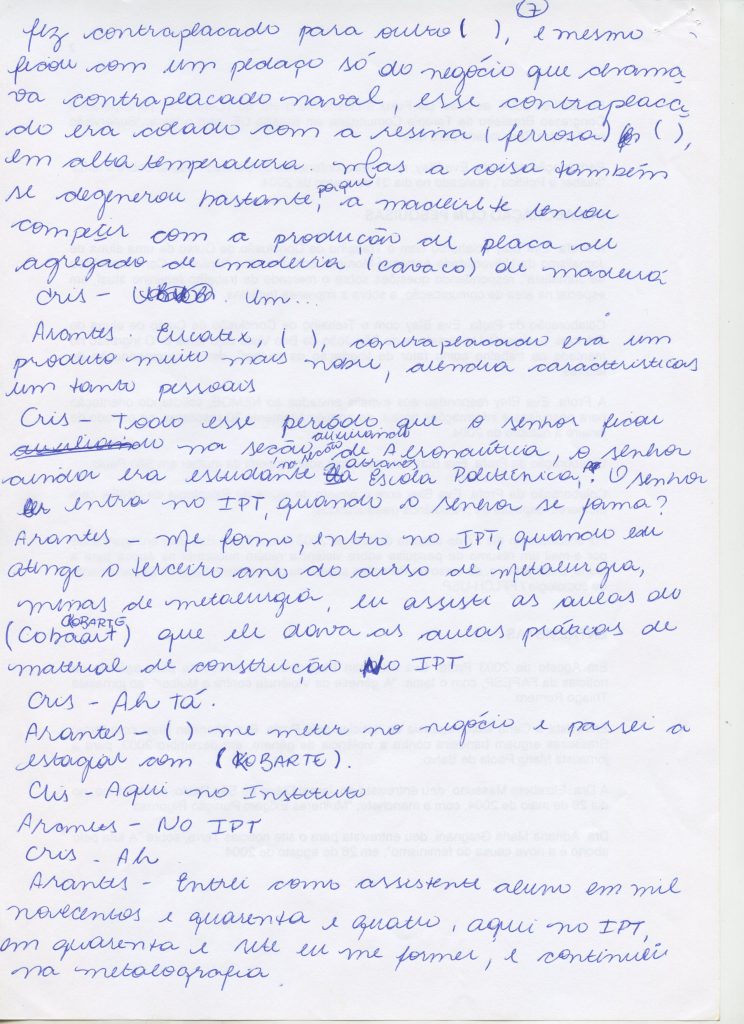 7
fez contraplacado para outro ( ), e mesmo
ficou com um pedaço só do negócio que chama
va contraplacado naval, esse contraplaca
do era colado com a resina (ferrosa) ( ),
em alta temperatura. Mas a coisa também
se degenerou bastante, porque a madeirite tentou
competir com a produção de placa de
agregado de madeira, (cavaco) de madeira
Cris - Um...
Arantes - Eucatex, ( ), contraplacado era um
produto muito mais nobre, atendia características
um tanto pessoais
Cris - Todo esse período que o senhor ficou
na seção auxiliando na seção de Aeronáutica, o senhor
ainda era estudante através Escola Politécnica? O senhor
entra no IPT, quando o senhor se forma?
Arantes - Me formo, entro no IPT, quando eu
atingi o terceiro ano do curso de metalurgia,
minas de metalurgia, eu assisti as aulas do
(Cobaart) COBARTE que ele dava as aulas práticas de
material de construção NO IPT
Cris - Ah tá.
Arantes - ( ) me meter no negócio e passei a
estagiar com (KOBARTE).
Cris - Aqui no Instituto
Arantes - NO IPT
Cris - Ah
Arantes - Entrei como assistente aluno em mil
novecentos e quarenta e quatro, aqui no IPT,
em quarenta e sete eu me formei, e continuei
na metalografia